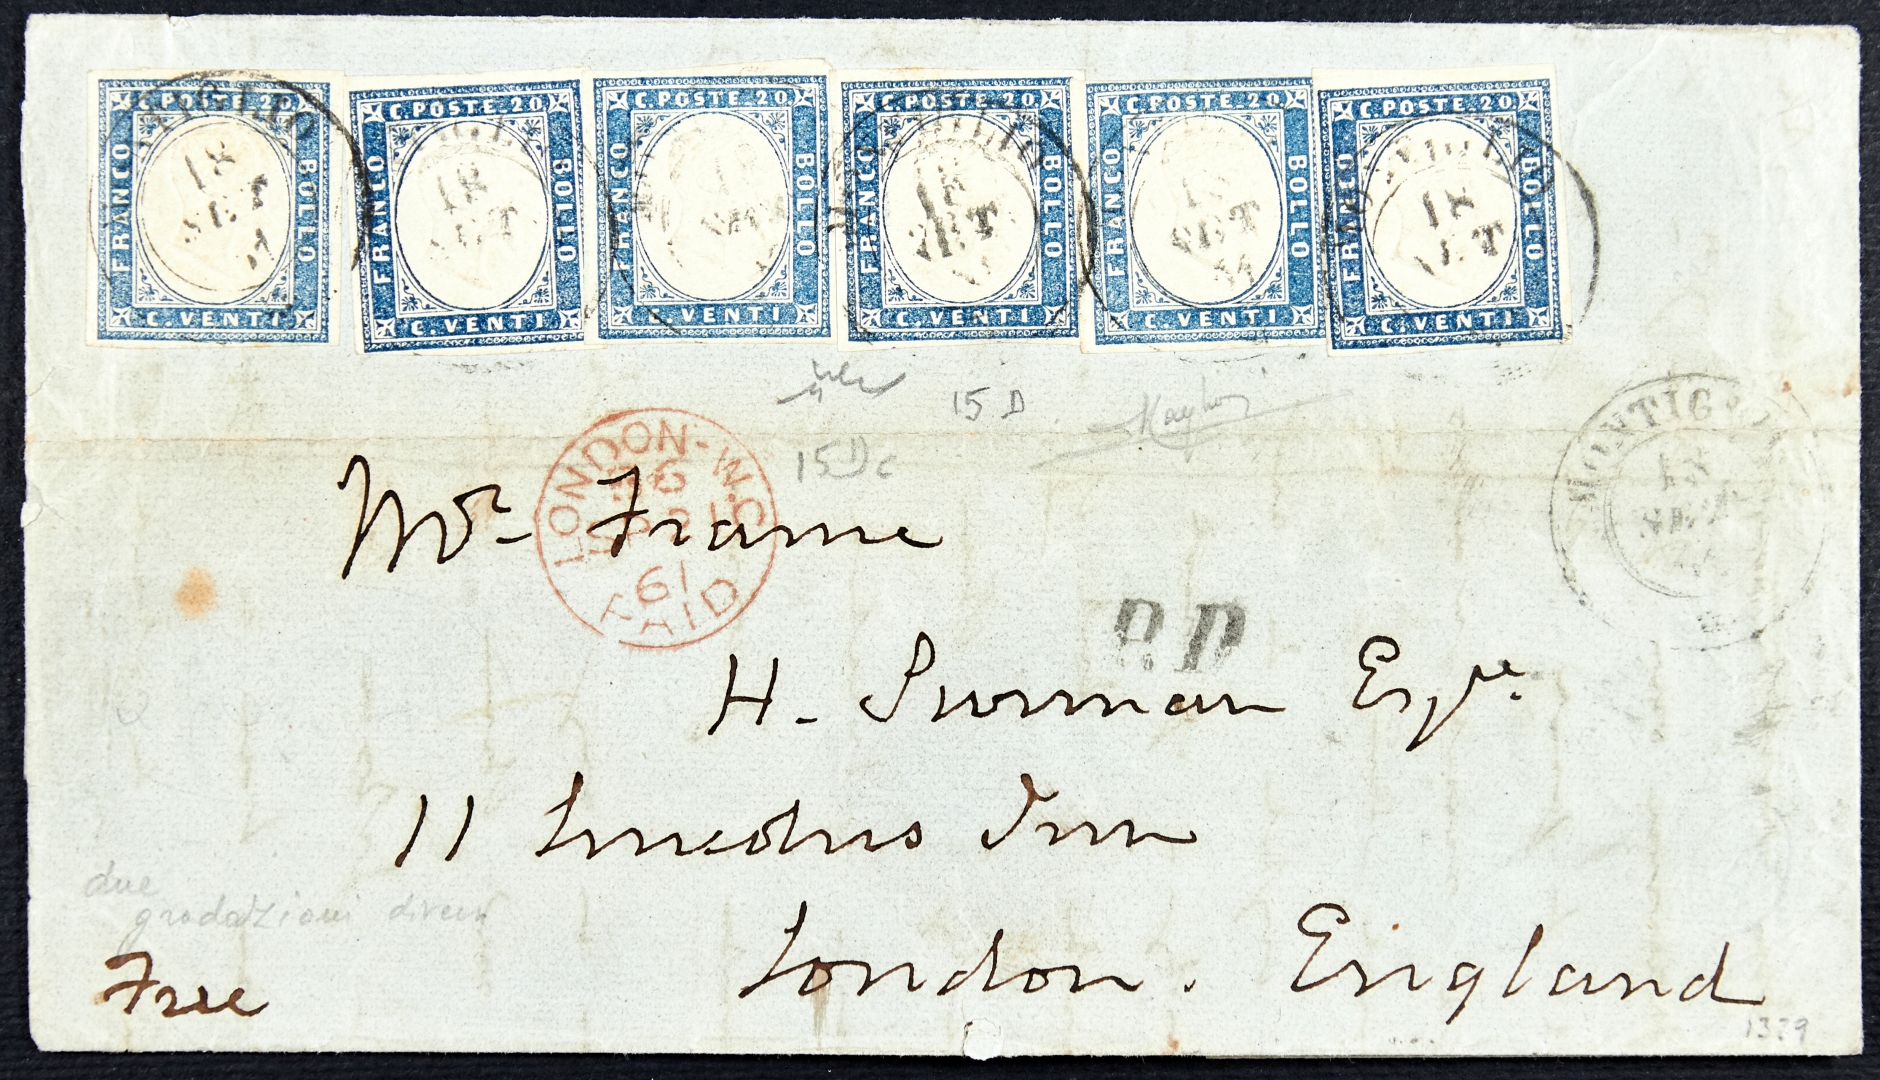 C. POSTE 20
FRANCO
BOLLO
C. VENTI
C. POSTE 20
FRANCO
BOLLO
C. VENTI
C. POSTE 20
FRANCO
BOLLO
C. VENTI
C. POSTE 20
FRANCO
BOLLO
C. VENTI
C. POSTE 20
FRANCO
BOLLO
C. VENTI
C. POSTE 20
FRANCO
BOLLO
C. VENTI
18
SET
18
SET
18
SET
18
SET
18
15 D
15Dc
LONDON-W.C
61
PAID
18
Mr. Frame
P.P.
H. Surman Esqre.
11 Lincolns Inn
London. England
due
gradazioni
Free
1329